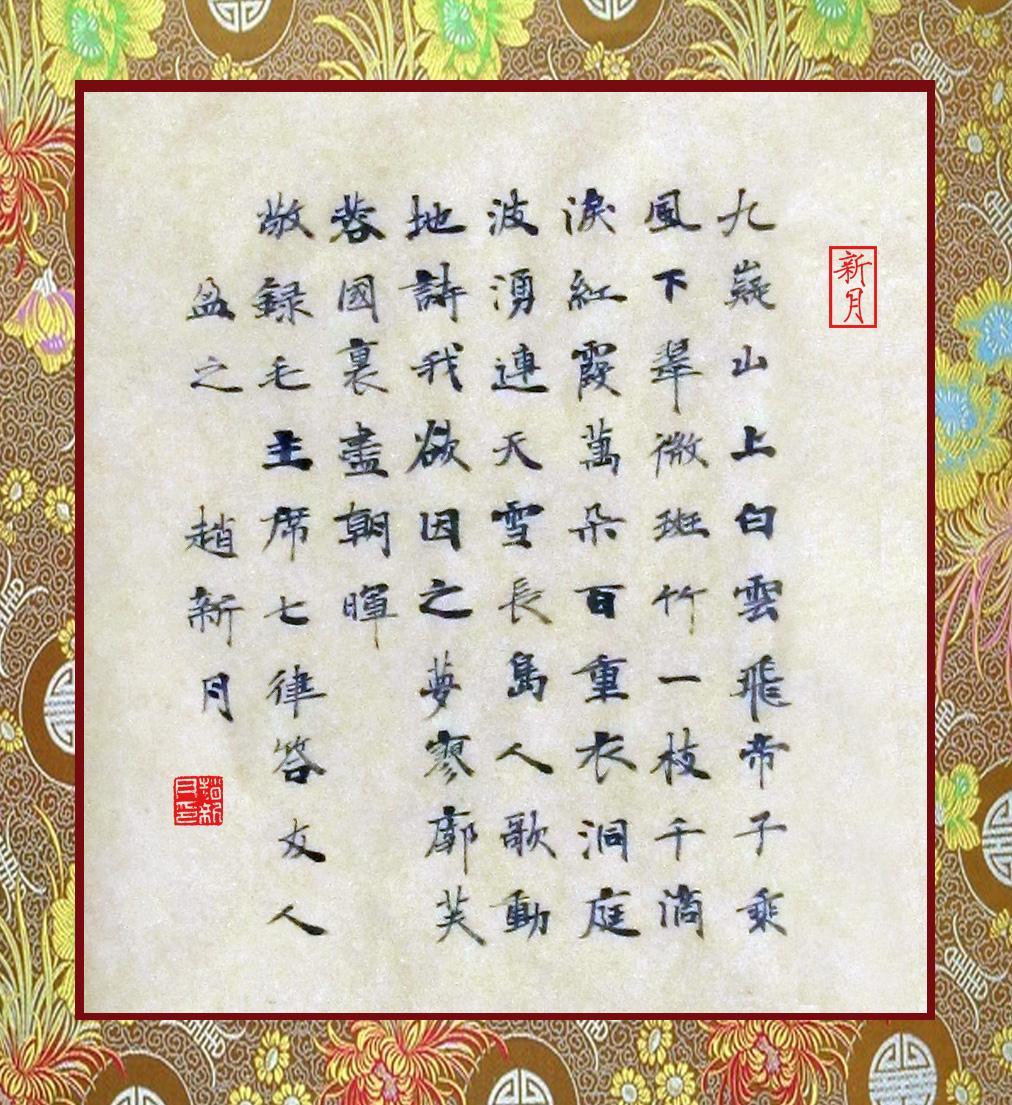 新月
九嶷山上白雲飛帝子乘
風下翠微斑竹一枝千滴
淚紅霞萬朵百重衣洞庭
波湧連天雪長島人歌動
地詩我欲因之夢寥廓芙
蓉國裏盡朝暉
敬録毛主席七律答友人
盈之 趙新月
趙新月印